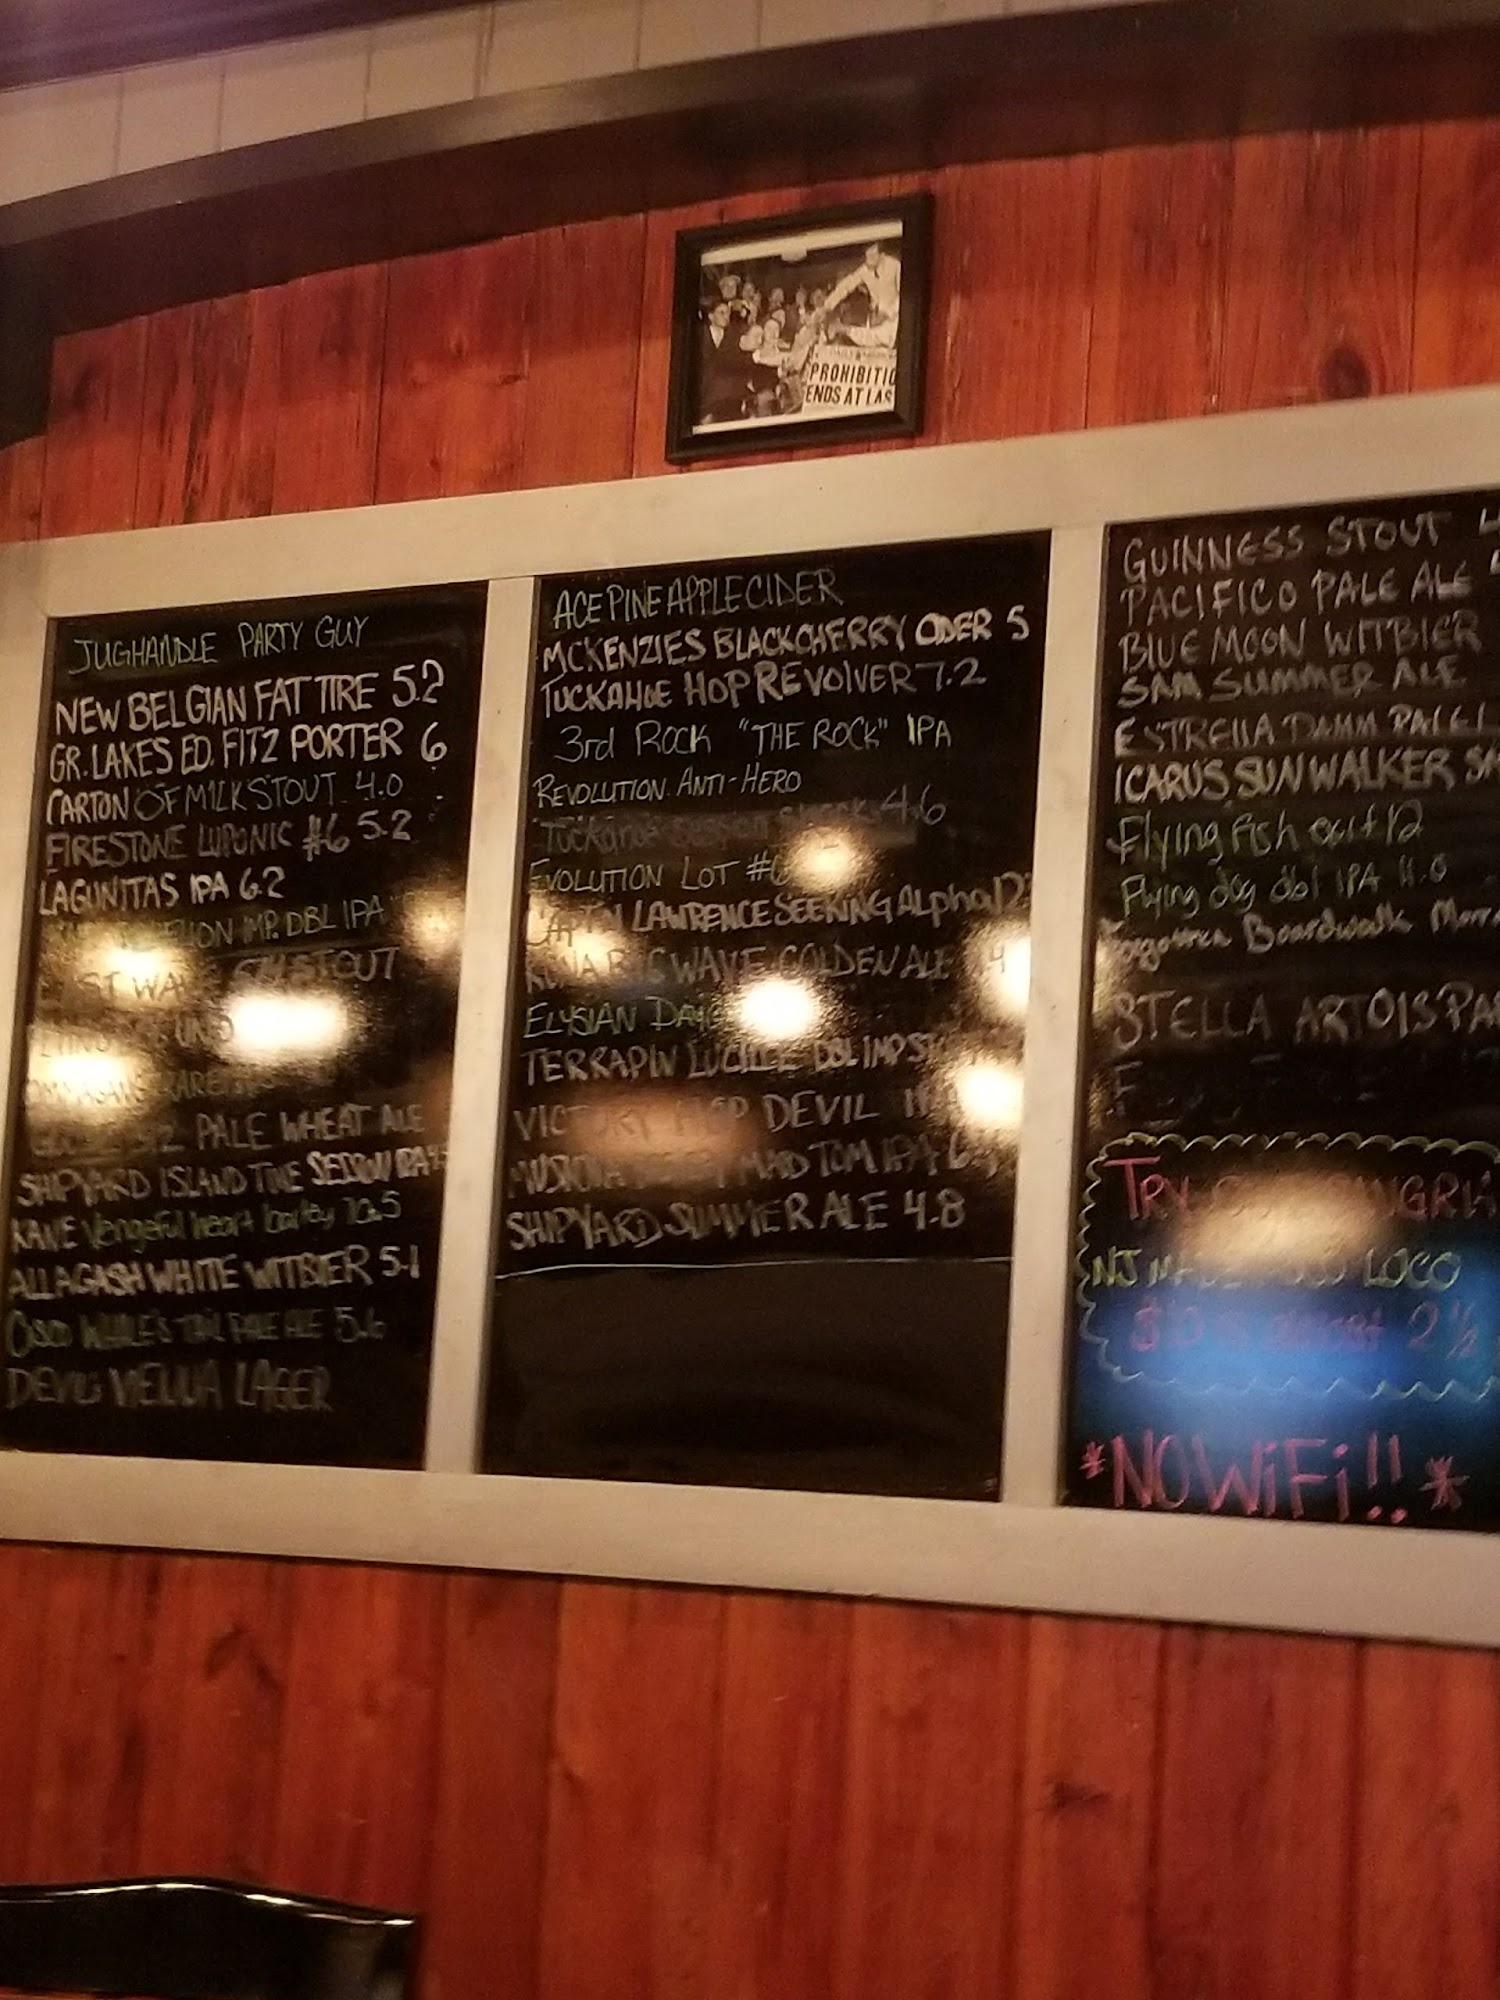 PROHIBITIO
ENDS AT LAS
JUGHANDLE PARTY GUY
NEW BELGIAN FAT TIRE 5.2
GR. LAKES ED. FITZ PORTER 6
CARTON OF MILK STOUT 4.0
FIRESTONE LUPONIC #6 5.2
LAGUNITAS IPA 6.2
IMP. DBL IPA
STOUT
PALE WHEAT ALE
SHIPYARD ISLAND TIME SESSION IPA
KANE Vengeful heart barley 10.5
ALLAGASH WHITE WITBIER 5.1
WHALE'S TAIL PALE ALE 5.6
DEVILS VIENNA LAGER
ACE PINEAPPLE CIDER
MCKENZIES BLACKCHERRY CIDER 5
TUCKAHOE HOP REVOLVER 7.2
3rd ROCK "THE ROCK" IPA
REVOLUTION ANTI-HERO
Tuckahoe 4.6
EVOLUTION LOT #6
CAPT'N LAWRENCE SEEKING Alpha 12
KONA BIG WAVE GOLDEN ALE 4
ELYSIAN DAY
TERRAPIN LUCILLE DBL IMP ST
VICTORY HOP DEVIL
MAD TOM IPA 6
SHIPYARD SUMMER ALE 4.8
GUINNESS STOUT
PACIFICO PALE ALE
BLUE MOON WITBIER
SAM SUMMER ALE
ESTRELLA DAMM PALE L
ICARUS SUN WALKER
Flying Fish exit 12
Flying dog dbl IPA 11.0
Forgotten Boardwalk
STELLA ARTOIS PA
TRY OUR SANGRIA
NJ MADE LOCO
2 1/2
*NO WiFi!!*